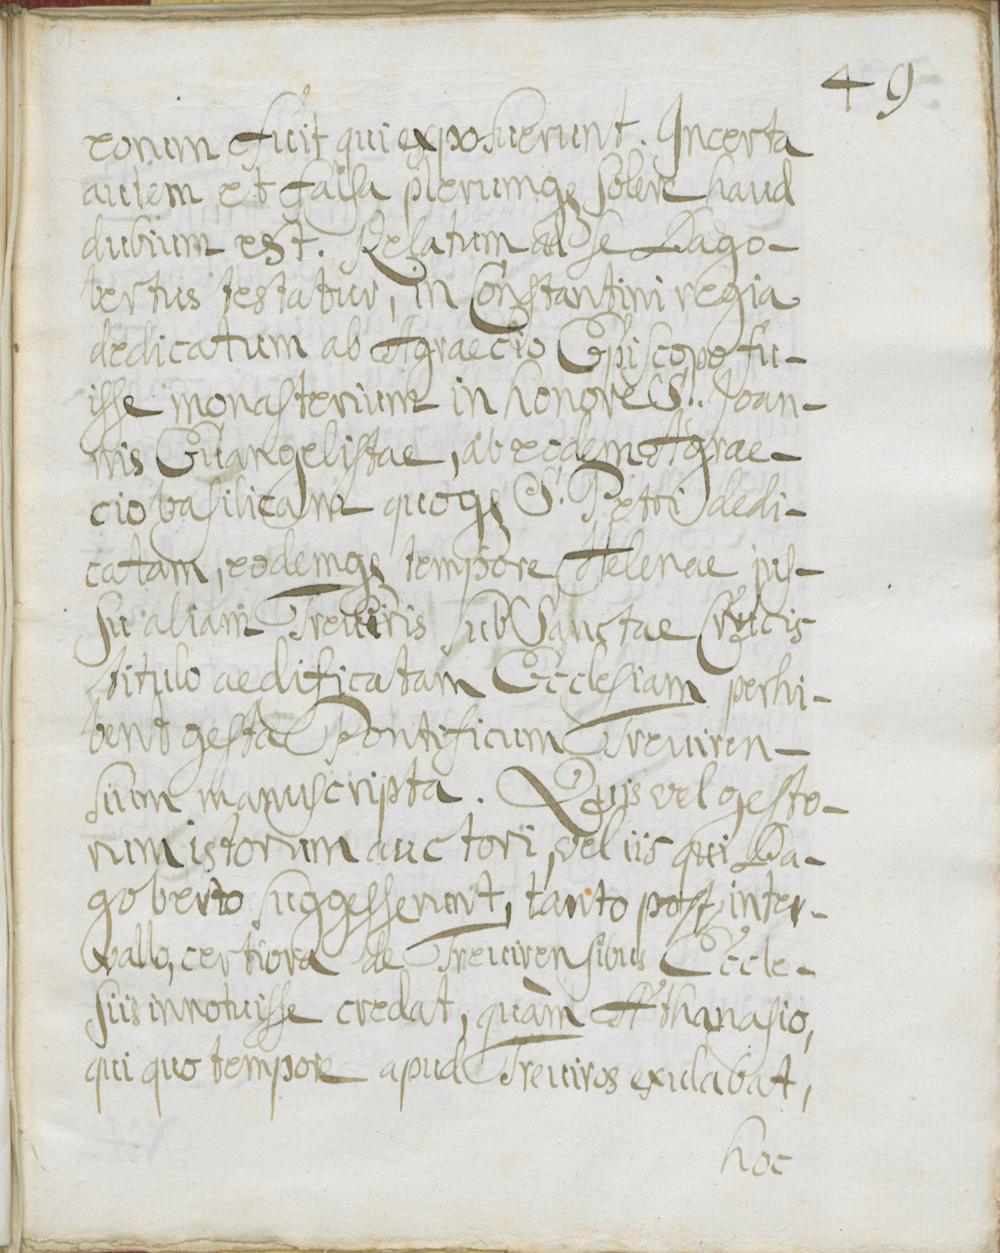 49
eorum fuit qui exposuerunt. Incerta
autem et falsa plerumq3 solere haud
dubium est. Relatum ad se Dago-
bertus testatur, in Constantini regia
dedicatum ab Agraecio Episcopo fu-
isse monasterium in honore S. Joan-
nis Euangelistae, ab eodem Agrae-
cio basilicam quoq3 S. Petri dedi-
catam, eodemq3 tempore Helenae jus-
su aliam Treuiris sub Sanctae Crucis
titulo aedificatam Ecclesiam perhi-
bent gesta Pontificum Treuiren-
sium manuscripta. Quis vel gesto-
rum istorum auctori, vel iis qui Da-
goberto suggesserunt, tanto post inter-
vallo, certiora de Treuirensibus Eccle-
siis innotuisse credat, quàm Athanasio,
qui quo tempore apud Treuiros exulabat,
hoc